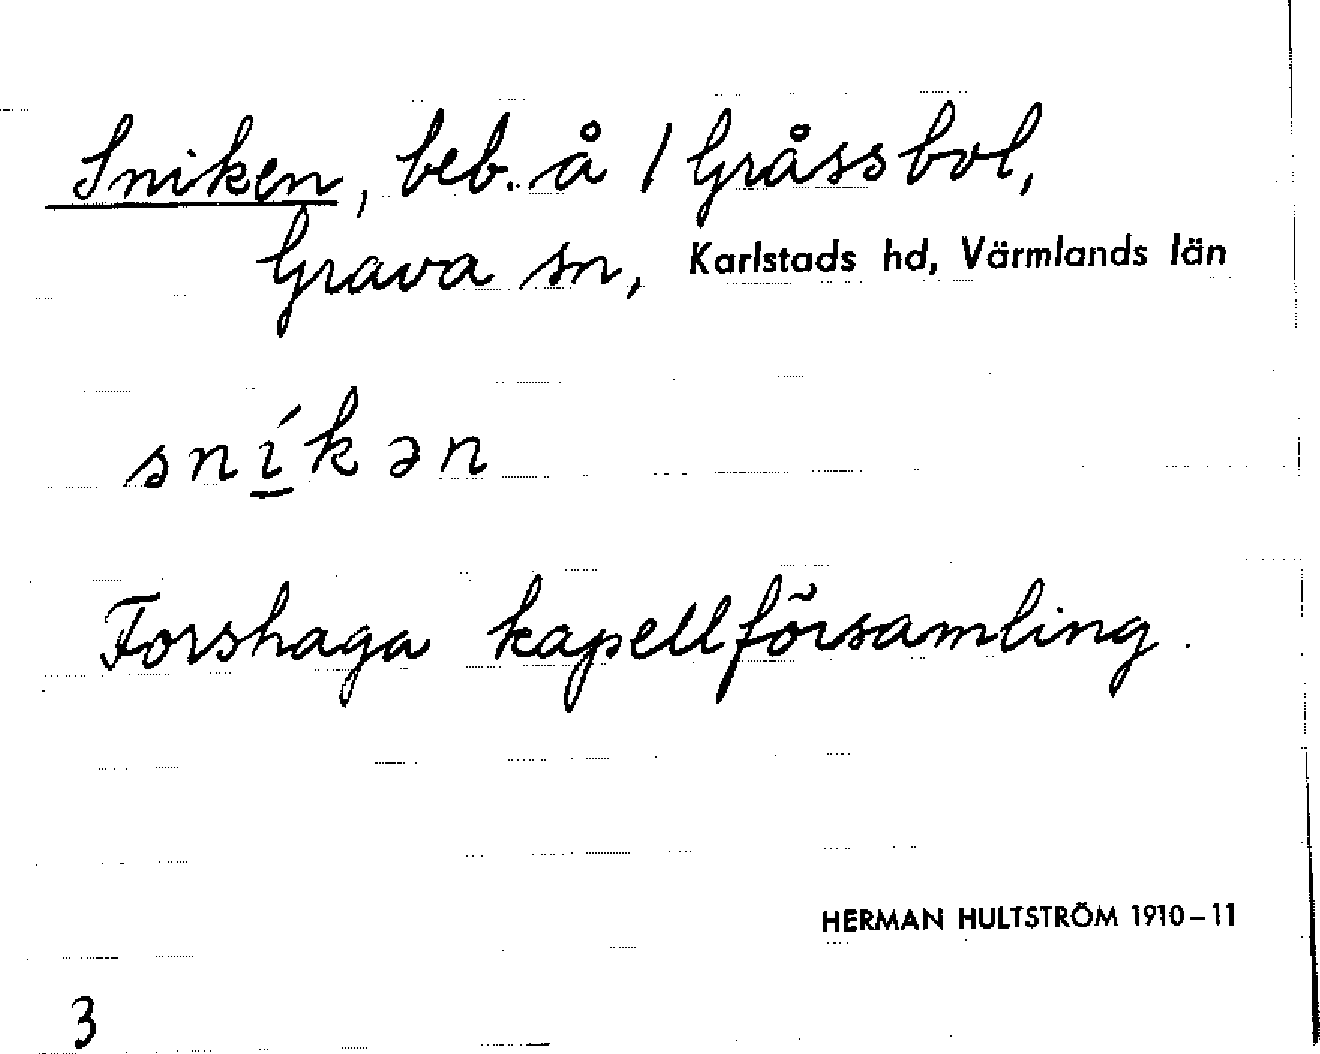 Sniken, beb. å 1 Gråssbol,
Grava sn, Karlstads hd, Värmlands län
snı̱́kən
Forshaga kapellförsamling.
HERMAN HULTSTRÖM 1910–11
3